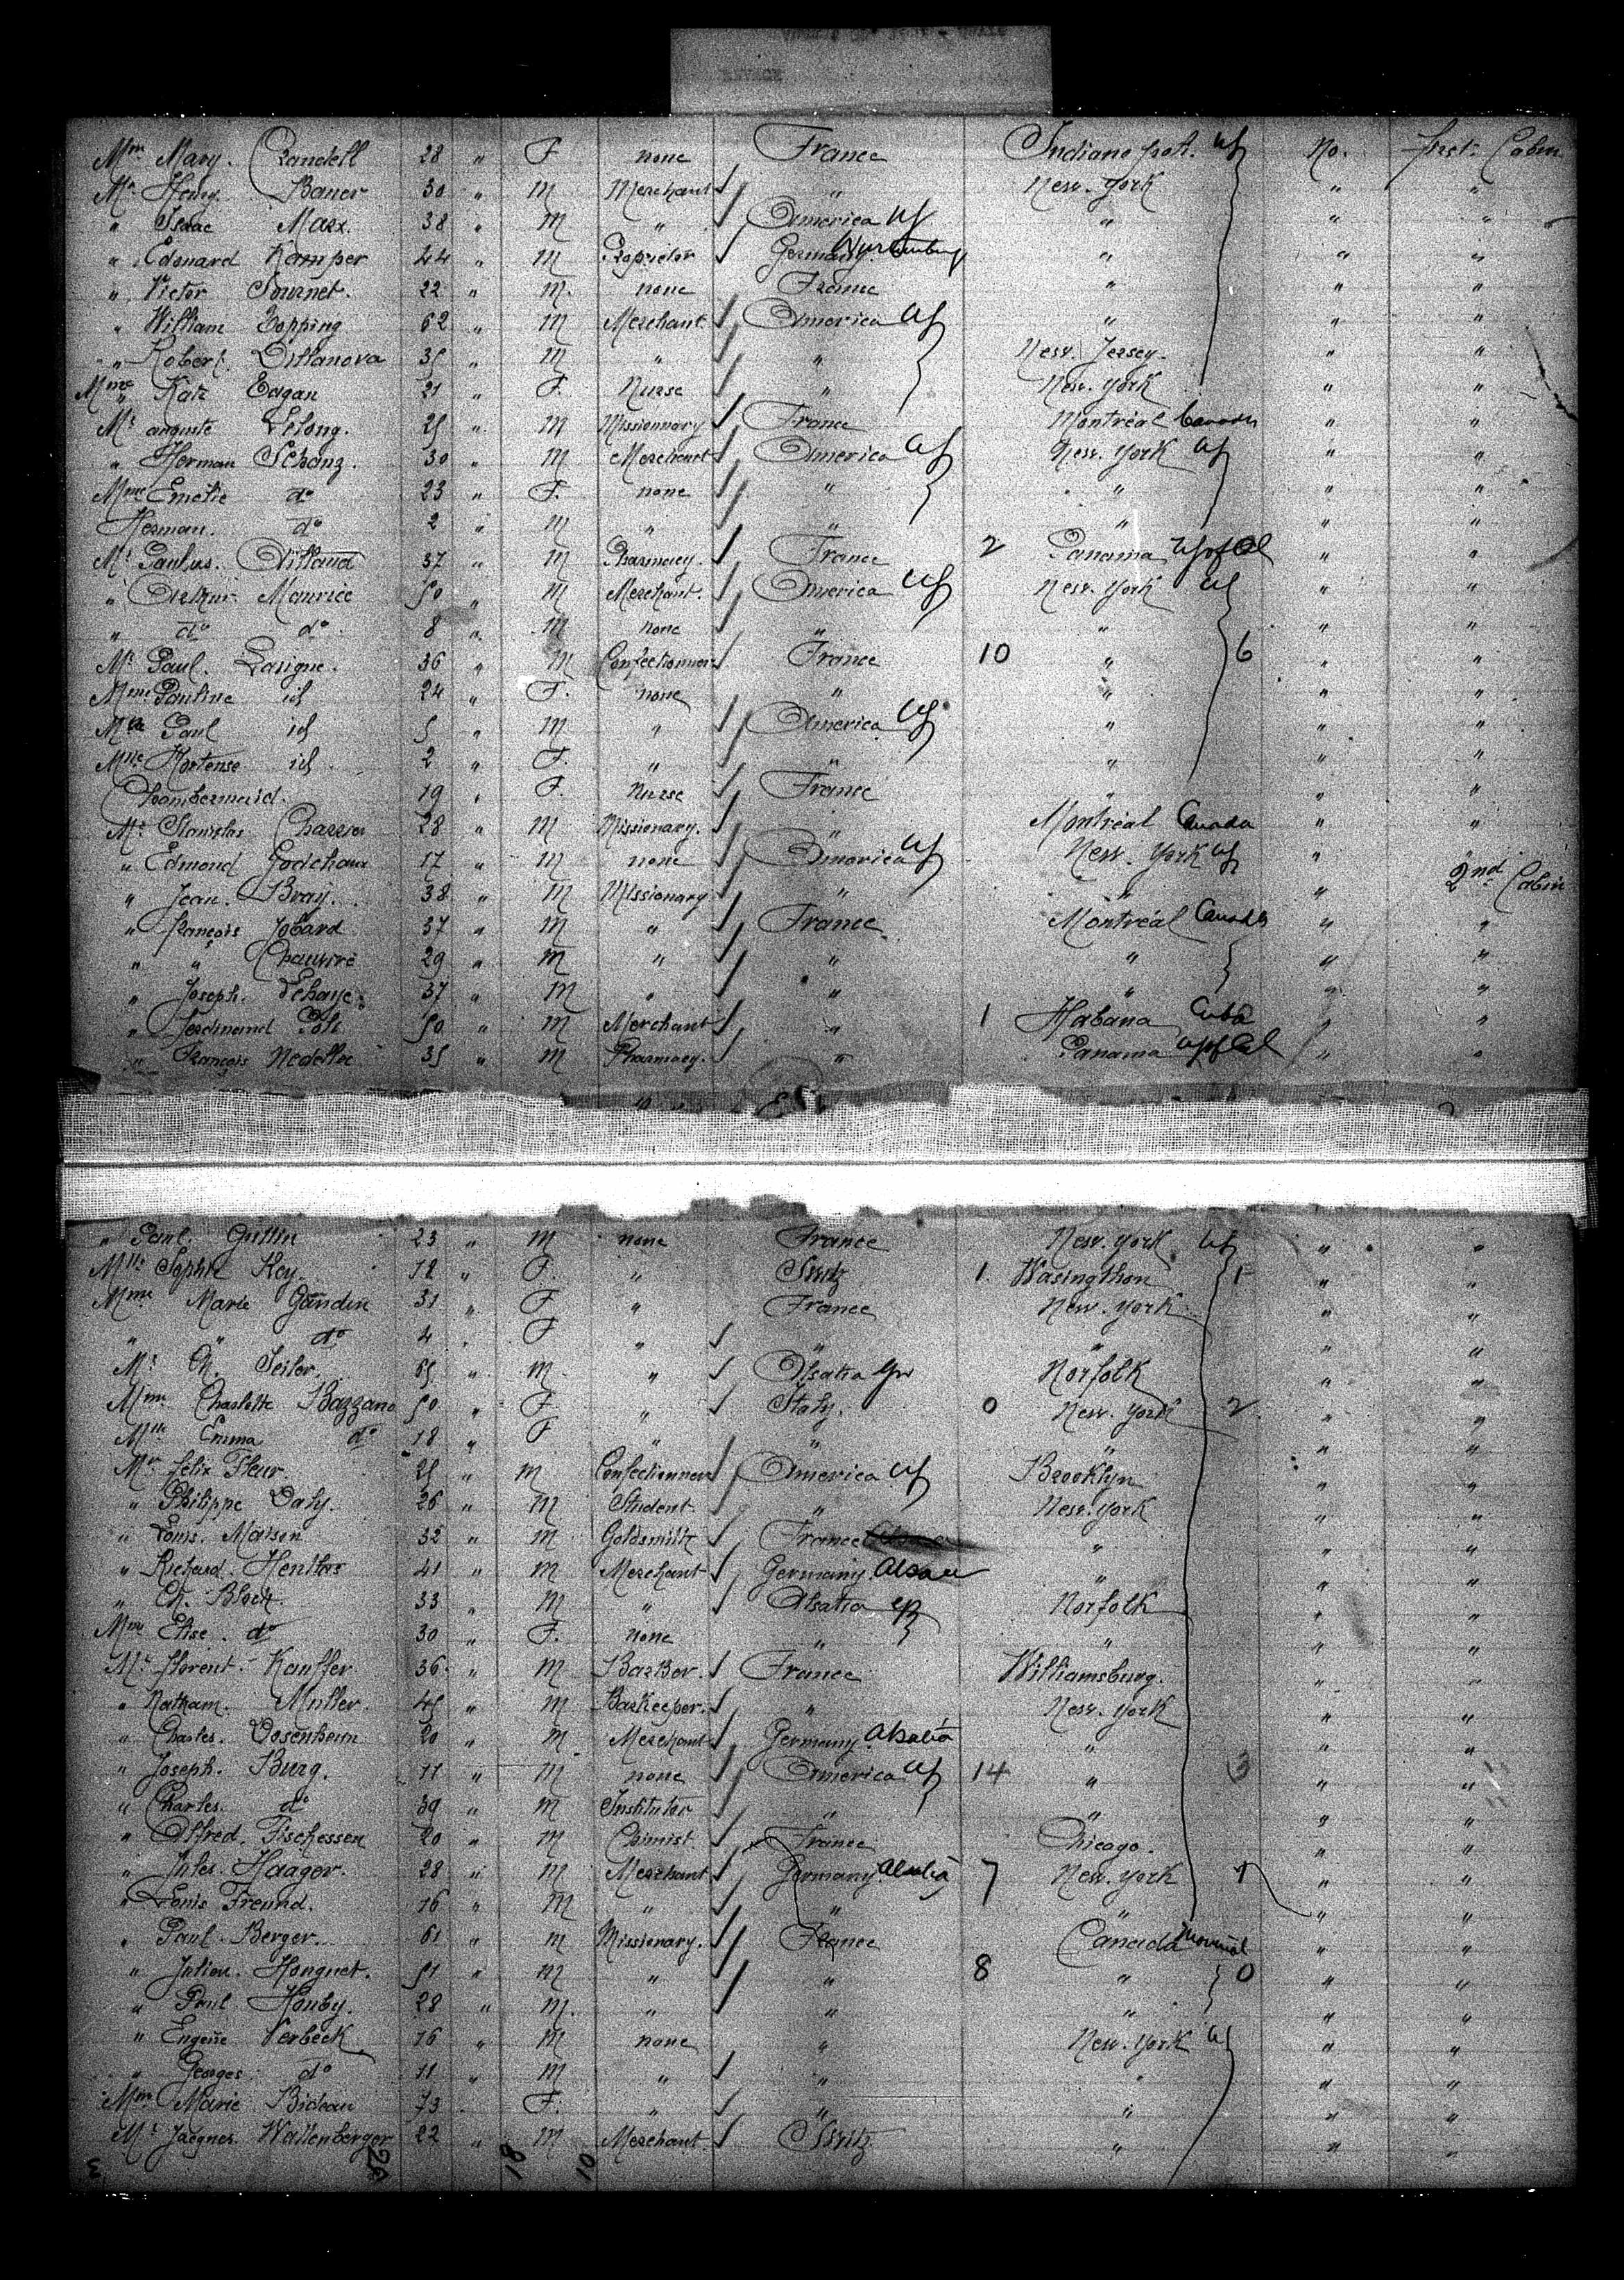 Mme Mary. Crandell 28 " F. none France Indianopolt. US No. first Cabin
Mr Henry Bauer 30 " M Merchant " New-York " "
" Isaac Marx. 38 " M " America US " " "
" Edouard Kamper 44 " M Proprietor Germany Wurtemburg " " "
" Victor Fournet. 22 " M. none France " " "
" William Topping 62 " M Merchant America US " " "
" Robert. 35 " M " " New. Jersey. " "
Mme Katz Eagan 21 " F. Nurse " New. York " "
Mr auguste Lelong. 25 " M Missionnary France Montréal Canada " "
" Herman Schanz. 30 " M Merchant America US New. York US " "
Mme Emelie do 23 " F. none " " " "
Herman. do 2 " M " " " " "
Mr Paulus. 37 " M Pharmacy. France 2 Panama US of Col " "
" Arthur Maurice 50 " M Merchant. America US New. York US " "
" do do 8 " M none " " " "
Mr Paul. Lasigne. 36 " M Confectionner France 10 " 6 " "
Mme Pauline id 24 " F. none " " " "
Paul id 5 " M " America US " " "
Mlle Hortense id 2 " F. " " " " "
Chambermaid. 19 " F. Nurse France " " "
Mr Stanislas Charrier 28 " M Missionary. " Montréal Canada " "
" Edmond Godchaux 17 " M none America US New. York US " "
" Jean. Bray. 38 " M Missionary " " " 2nd Cabin
" françois Jobard 37 " M " France Montréal Canada " "
" " 29 " M " " " " "
" Joseph. Lehaye 37 " M " " " " "
" Ferdinand 50 " M Merchant " 1 Habana Cuba " "
" François Nedellec 35 " M Pharmacy. " Panama US of Col " "
" Paul. 23 " M none France New. York US " "
Mlle Sophie Rey. 12 " F. " Switz 1 Wasingthon 1 " "
Mme Marie Gandin 31 " F. " France New. York " "
" " do 4 " F " " " " "
Mr Ch. Seiler. 65 " M. " Alsatia Gr Norfolk " "
Mme Charlotte Bazzano 50 " F. " Italy. 0 New. York 2 " "
Mlle Emma do 18 " F " " " " "
Mr félix Fleur. 25 " M Confectionner America US Brooklyn " "
" Philippe Daly. 26 " M Student. " New. York " "
" Louis. Maison 32 " M Goldsmith France " " "
" Richard. 41 " M Merchant Germany. Alsace " " "
" Ch. Bloch. 33 " M " Alsatia Norfolk " "
Mme Elise. do 30 " F. none " " " "
Mr florent. Kauffer 36 " M Barber. France Williamsburg. " "
" Natham. Muller 45 " M Barkeeper. " New. York " "
" Charles. 20 " M Merchant Germany. Alsatia " " "
" Joseph. Burg. 11 " M none America US 14 " 3 " "
" Charles. do 39 " M Institutor " " " "
" Alfred. Fischessen 20 " M Chimist. France Chicago. " "
" Jules. Haager. 28 " M Merchant Germany Alsatia 7 New. York 1 " "
" Louis Freund. 16 " M " " " " "
" Paul. Berger. 61 " M Missionary. France Canada Montréal " "
" Julien. Honguet. 51 " M " " 8 " 0 " "
" Paul. Houby. 28 " M. " " " " "
" Eugène Verbeck 16 " M none " New. York US " "
" Georges do 11 " M " " " " "
Mme Marie Bideau 73 " F. " " " " "
Mr Jacques. Wallenberger 22 " M Merchant. Switz " " "
18 10